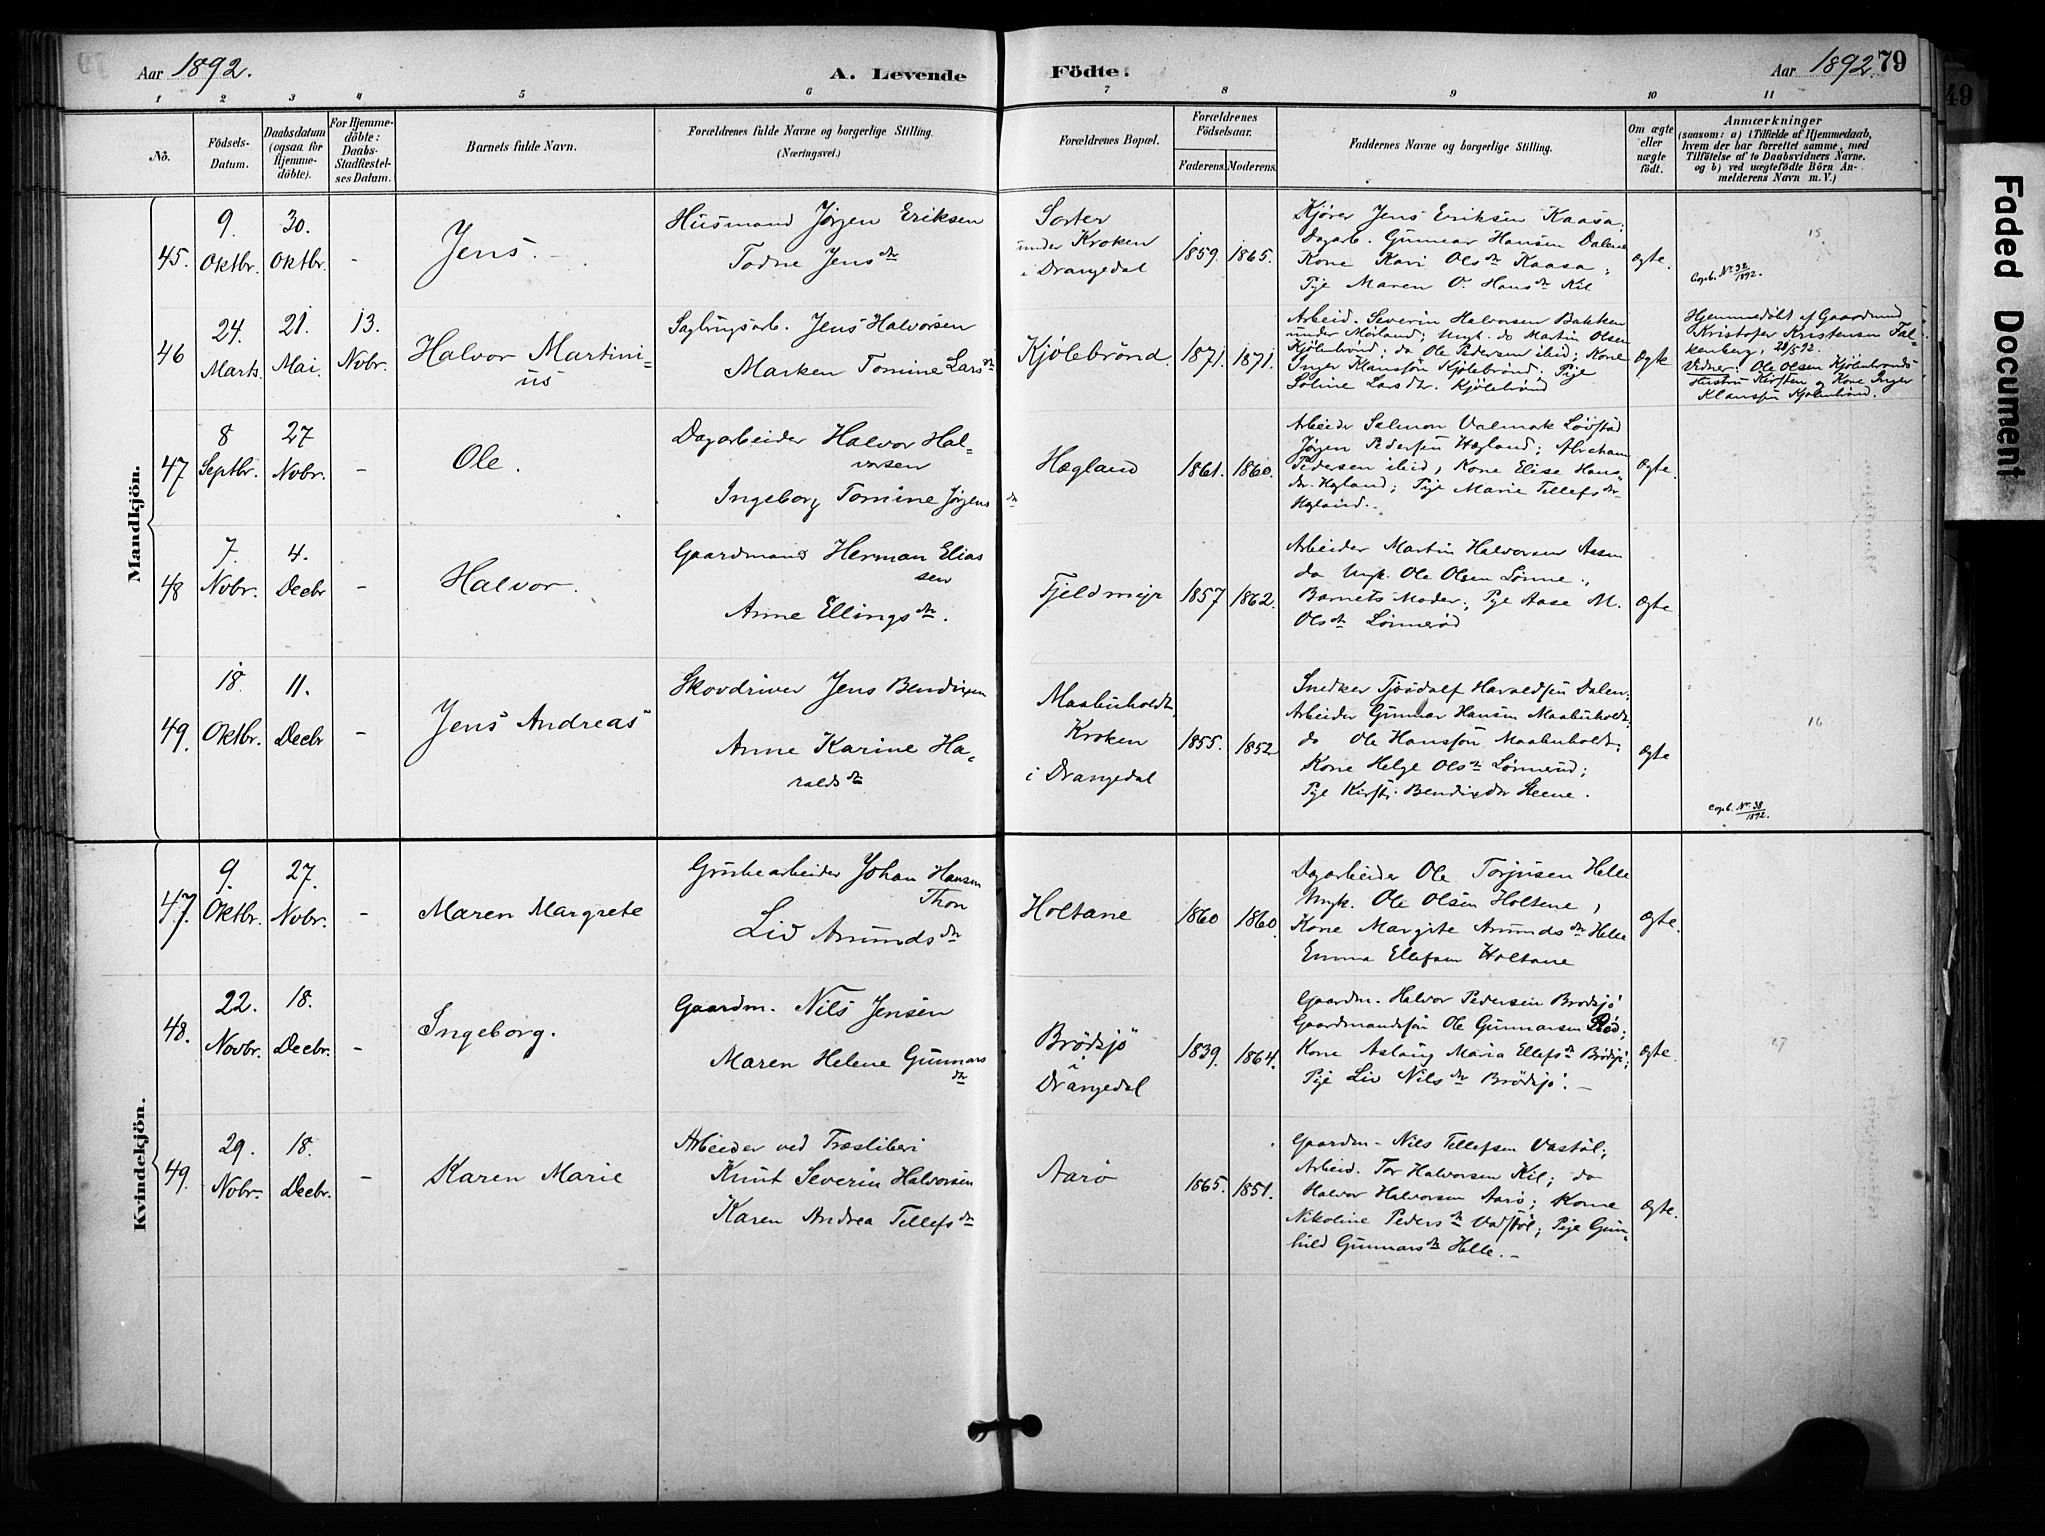 Aar 1892.
A. Levende
Födte.
Aar 1892. 79
1 2 3 4 5 6 7 8 9 10 11
No.
Födsels-Datum.
Daabsdatum (ogsaa for Hjemme-döbte).
For Hjemme-döbte: Daabs-Stadfæstel-ses Datum.
Barnets fulde Navn.
Forældrenes fulde Navne og borgerlige Stilling.
(Næringsvei.)
Forældrenes Bopæl.
Forældrenes Födselsaar.
Faderens. Moderens.
Faddernes Navne og borgerlige Stilling.
Om ægte eller uægte födt.
Anmærkninger
(saasom: a) i Tilfælde af Hjemmedaab, hvem der har forrettet samme, med Tilföielse af to Daabsvidners Navne. og b) ved uægtefödte Börn Anmelderens Navn m. V.)
Mandkjön.
45.
9. Oktbr.
30. Oktbr.
-
Jens.
Husmand Jørgen Eriksen
Todne Jensdtr
Sorter
under Kroken
i Drangedal
1859. 1865.
Kjører Jens Eriksen Kaasa;
Dagarb. Gunnar Hansen Dalene
Kone Kari Olsdtr Kaasa;
Pige Maren O. Hansdtr Kil
ægte.
15
Copb. No 32/1892.
46
24. Marts.
21. Mai.
13. Novbr.
Halvor Martini-
us
Sagbrugsarb. Jens Halvorsen
Marken Tomine Larsdtr
Kjølebrønd
1871. 1871.
Arbeid. Severin Halvorsen Bakken
under Møland; Ungk. do Martin Olsen
Kjølebrønd; do Ole Pedersen ibid; Kone
Inger Klausson Kjølebrønd; Pige
Soline Larsdtr. Kjølebrønd
ægte
Hjemmedøbt af Gaardmand
Kristofer Kristensen Fal-
kenberg, 28/5 92.
Vidner: Ole Olsen Kjølebrønds
Hustru Kirsten og Kone Inger
Klausson Kjølebrønd.
47
8 Septbr.
27 Novbr.
-
Ole.
Dagarbeider Halvor Hal-
vorsen
Ingeborg Tomine Jørgensdtr
Hægland
1861. 1860.
Arbeider Salmon Valmak Løvstad
Jørgen Pedersen Hægland; Abraham
Pedersen ibid; Kone Elise Hans-
dtr. Hægland; Pige Marie Tellefsdtr
Hægland.
ægte.
48
7. Novbr.
4. Decbr
-
Halvor.
Gaardmand Herman Elias
sen
Anne Ellingsdtr.
Fjeldmyr
1857 1862.
Arbeider Martin Halvorsen Aasen
do Ungk. Ole Olsen Lønne.;
Barnets Moder; Pige Aase M.
Olsdtr Lønnerød
ægte
49.
18. Oktbr.
11. Decbr
-
Jens Andreas
Skovdriver Jens Bendixen
Anne Karine Ha-
raldsdtr
Maabuholdt,
Kroken
i Drangedal
1855. 1852
Snedker Tjøsdolf Haraldsen Dalen;
Arbeider Gunnar Hansen Maabuholdt;
do Ole Hansson Maabuholdt;
Kone Helge Olsdtr Lønnerud;
Pige Kirsti Bendixdtr Steene.
ægte
16
Copb. No. 38/1892.
Kvindekjön.
47.
9. Oktbr.
27. Novbr.
-
Maren Margrete
Grubearbeider Johan Hansen
Thon
Liv Amundsdtr
Holtane
1860 1860.
Dagarbeider Ole Torjusen Helle
Ungk. Ole Olsen Holtene,
Kone Margrete Amundsdtr Helle
Emma Ellefsen Holtane
ægte.
48.
22. Novbr.
18. Decbr.
-
Ingeborg.
Gaardm. Nils Jensen
Maren Helene Gunnarsdtr
Brödsjö
i
Drangedal
1839. 1864.
Gaardm. Halvor Pedersen Brødsjö
Gaardmandssøn Ole Gunnarsen Rød;
Kone Aslaug Maria Ellefsdtr Brødsjö;
Pige Liv Nilsdtr Brødsjö. -
ægte.
17
49.
29. Novbr.
18. Decbr.
-
Karen Marie
Arbeider ved Træsliberi
Knut Severin Halvorsen
Karen Andrea Tellefsdtr
Aarø
1865. 1851.
Gaardm. Nils Tellefsen Vastøl;
Arbeid. Tor Halvorsen Kil; do
Halvor Halvorsen Aarø; Kone
Nikoline Pedersdtr Vastøl; Pige Gun-
hild Gunnarsdtr Helle. -
ægte.
49
Faded Document